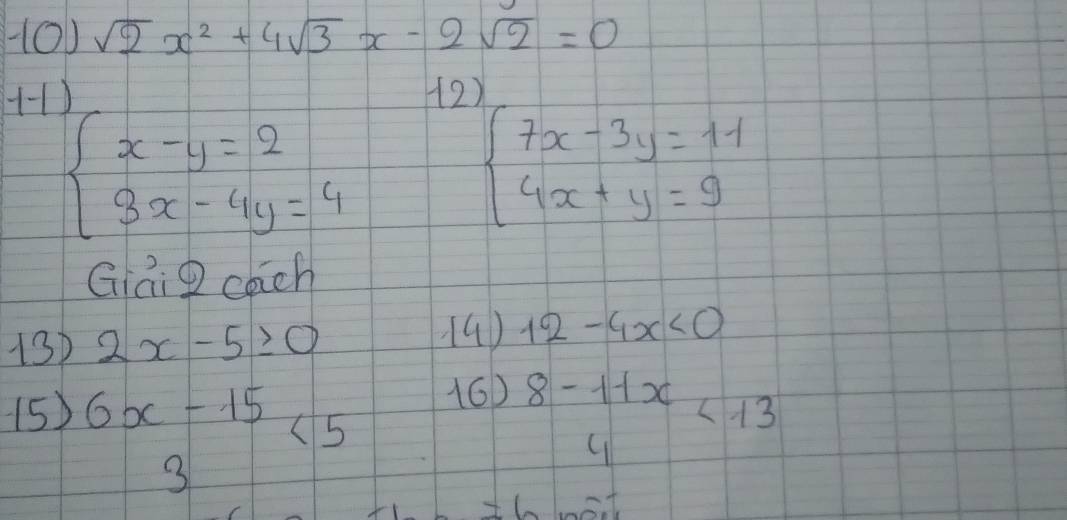 10) √2 x² + 4√3 x - 2√2 = 0
11) 12)
{ x - y = 2
3x - 4y = 4
{ 7x - 3y = 11
4x + y = 9
Giải 2 cách
13) 2x - 5 ≥ 0 14) 12 - 4x < 0
15) 6x - 15 < 5 16) 8 - 11x < 13
3 4